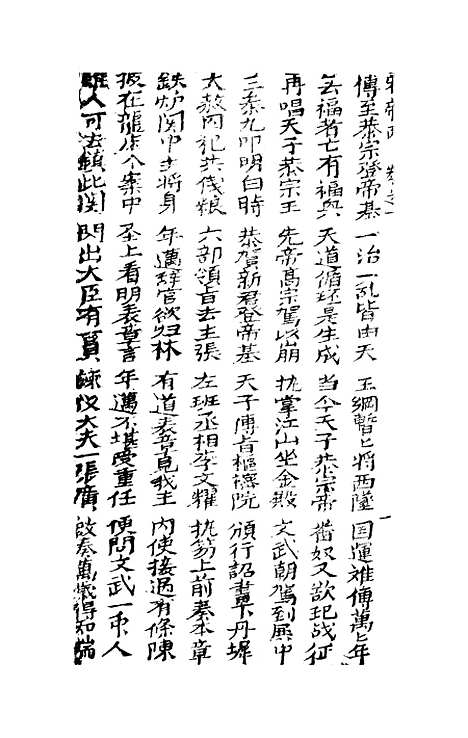 卷之一
傳至恭宗登帝基 一治一乱皆由天 玉綱暫匕將西墜 国運难傳萬匕年
無福者亡有福興 天道循环是生成 当今天子恭宗帝 番奴又欲犯战征
再唱天子恭宗王 先帝高宗駕以崩 执掌江山坐金殿 文武朝駕到展中
三奏九叩明白時 恭賀新君登帝基 天子傳旨樞密院 頒行詔書下丹墀
大赦囚犯共伐粮 六部領旨去主張 左班丞相李文耀 执笏上前奏本章
鉄炉関中主將身 年邁辞官欲归林 有道表章見我主 內使接過有條陳
披在龍床个案中 圣上看明表章言 年邁不堪受重任 便問文武一帀人
誰人可去鎮此関 閃出大臣有一員 諫议大夫一張廣 啟奏萬歲得知端